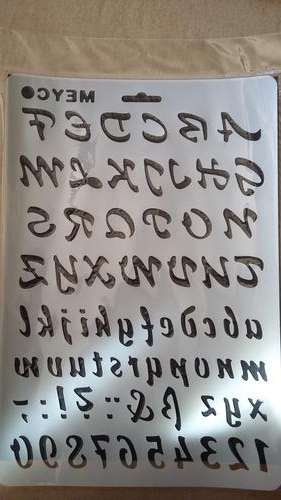 MEYCO
ABCDEF
GHIJKLM
NOPQRS
TUVWXYZ
abcdefghijkl
mnopqrstuvw
xyzß&
1234567890